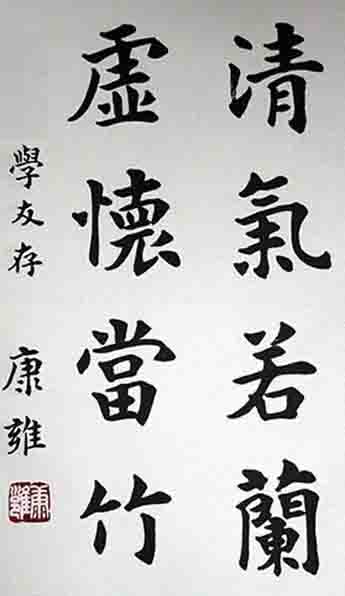 清氣若蘭
虛懷當竹
學友存
康雍
康雍